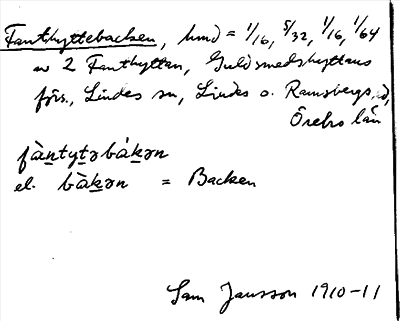 Fanthyttebacken, hmd = 1/16, 5/32, 1/16, 1/64
av 2 Fanthyttan, Guldsmedshyttans
förs., Lindes sn, Lindes o. Ramsbergs hd,
Örebro län
fàntytə bákən
el. bàkən = Backen
Sam Jansson 1910-11